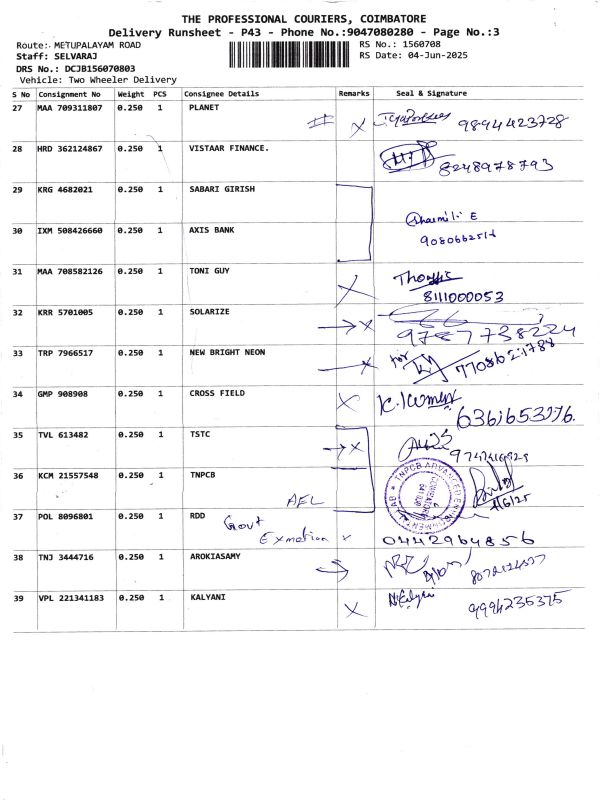 THE PROFESSIONAL COURIERS, COIMBATORE
Delivery Runsheet - P43 - Phone No.:9047080280 - Page No.:3
Route: METUPALAYAM ROAD RS No.: 1560708
Staff: SELVARAJ RS Date: 04-Jun-2025
DRS No.: DCJB156070803
Vehicle: Two Wheeler Delivery
S No Consignment No Weight PCS Consignee Details Remarks Seal & Signature
27 MAA 709311807 0.250 1 PLANET # X 9894423728
28 HRD 362124867 0.250 1 VISTAAR FINANCE. 8248978793
29 KRG 4682021 0.250 1 SABARI GIRISH
Sharmili E
30 IXM 508426660 0.250 1 AXIS BANK
31 MAA 708582126 0.250 1 TONI GUY X
8111000053
32 KRR 5701005 0.250 1 SOLARIZE → X
9787738224
33 TRP 7966517 0.250 1 NEW BRIGHT NEON X for 7708621788
34 GMP 908908 0.250 1 CROSS FIELD X
35 TVL 613482 0.250 1 TSTC → X
36 KCM 21557548 0.250 1 TNPCB
AEL 4/6/25
37 POL 8096801 0.250 1 RDD Govt
Exmotion x 0442964856
38 TNJ 3444716 0.250 1 AROKIASAMY →
39 VPL 221341183 0.250 1 KALYANI X 9994235375